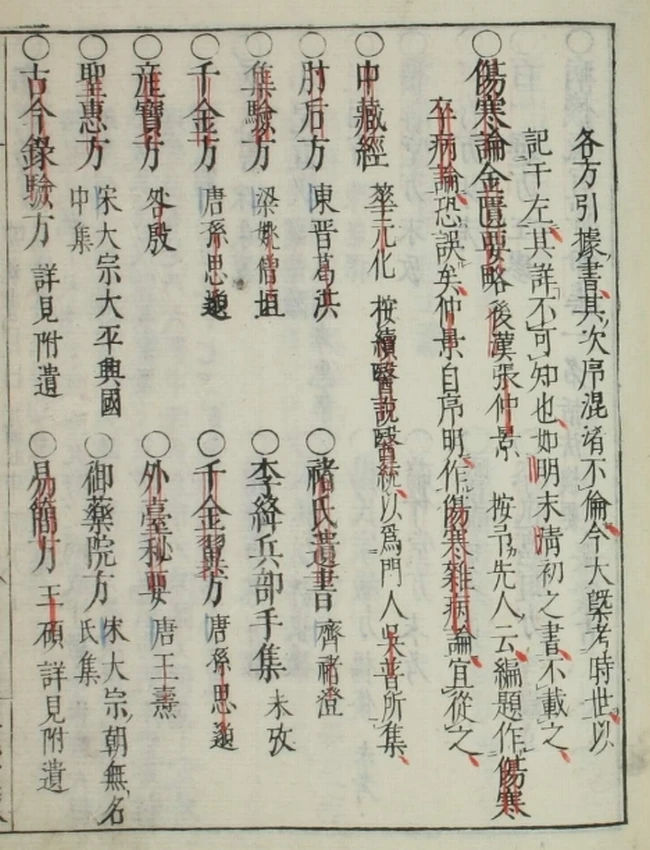 各方引據書其次序混渚不倫今大槩考時世以
記于左其詳不可知也如明末清初之書不載之
○傷寒論金匱要略 後漢張仲景 按先人云編題作傷寒
卒病論恐誤矣仲景自序明作傷寒雜病論宜從之
○中藏經 華元化 按續醫說醫統以爲門人吳普所集
○肘后方 東晋葛洪 ○褚氏遺書 齊褚澄
○集驗方 梁姚僧垣 ○李絳兵部手集 未攷
○千金方 唐孫思邈 ○千金翼方 唐孫思邈
○産寶方 昝殷 ○外臺秘要 唐王燾
○聖惠方 宋大宗大平興國中集 ○御藥院方 宋大宗朝無名氏集
○古今錄驗方 詳見附遺 ○易簡方 王碩 詳見附遺